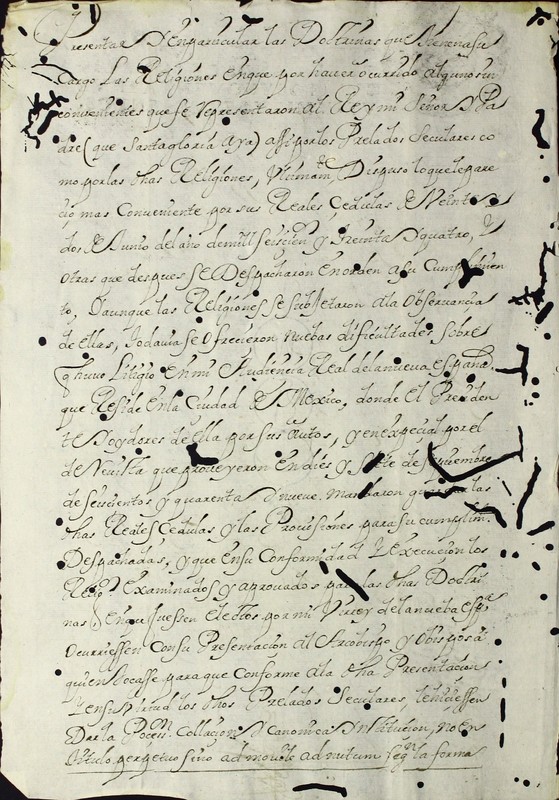 Presentar, Y En particular las Doctrinas que tienen a su
Cargo Las Religiones En que por haver ocurrido algunos in
convenientes que se representaron al Rey mi Señor Y Pa
dre (que santa gloria Aya) assi por los Prelados Seculares co
mo por las dhas Religiones, Ultimamte Dispuso lo que le pare
cio mas Conveniente por sus Reales Çedulas de Veinte y
dos de Junio del año de mill seiscientos y treinta Y quatro, Y
otras que despues se Despacharon en orden a su Cumplimien
to, Y aunque las Religiones se subjetaron a la Observancia
de ellas, todavia se ofrecieron nuebas dificultades sobre
q huvo Litigio En mi Audiencia Real de la nueva españa
que Reside En la Ciudad de Mexico, donde el Presiden
te Y oydores de ella por sus Autos, y en especial por el
de Revista que proveyeron En dies y siete de
de seiscientos y quarenta Y nueve. Mandaron las
dhas Reales Çedulas y las Provissiones para su cumplimto
Despachadas, y que en su Conformidad Y Execucion los
Relig.os Examinados y aprovados para las dhas Doctri
nas En que fuessen electos por mi Virrey de la nueba Espa
Ocurriessen Con su Presentacion al Arcobispo, y Obispos a
quien tocasse para que Conforme a la dha Presentacion
Y en su virtud los dhos Prelados Seculares, les hiciessen
Dar la Poces.n Collacion, Y Canonica Ynstitucion, no En
titulo perpetuo sino ad movile ad nutum segn la forma